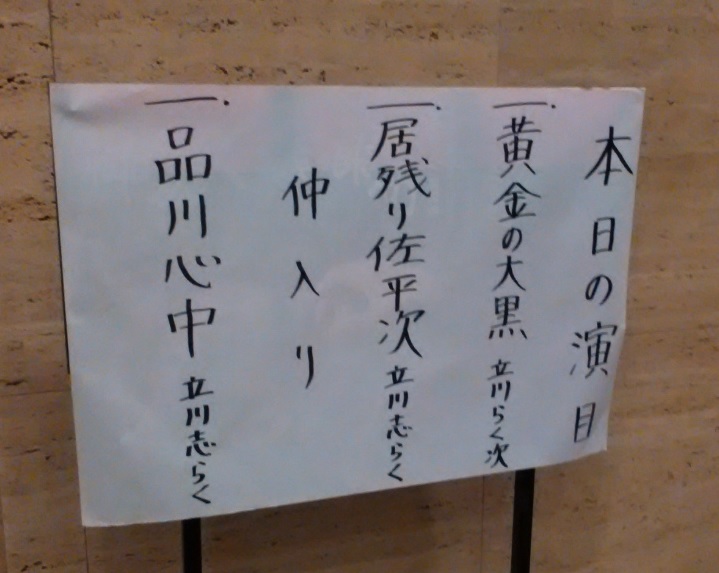 本日の演目
一．黄金の大黒 立川らく次
一．居残り佐平次 立川志らく
仲入り
一．品川心中 立川志らく